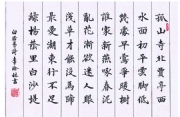 孤山寺北賈亭西
水面初平雲腳低
幾處早鶯爭暖樹
誰家新燕啄春泥
亂花漸欲迷人眼
淺草才能沒馬蹄
最愛湖東行不足
綠楊蔭里白沙堤